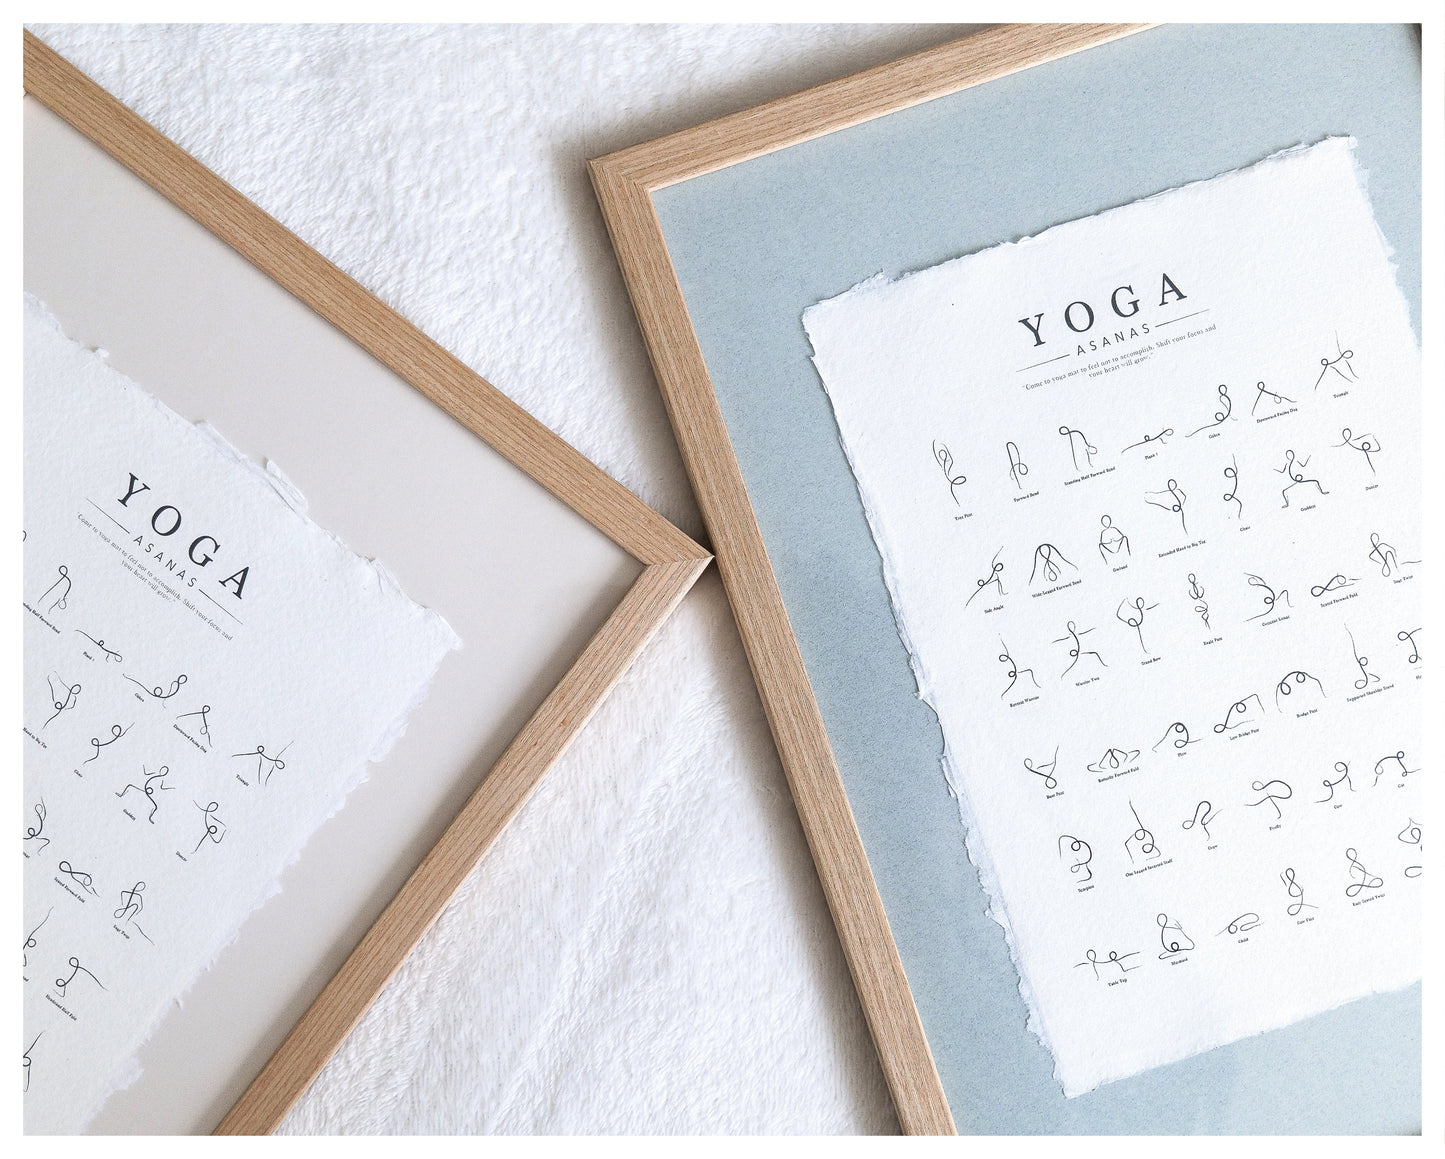 YOGA
ASANAS
"Come to yoga mat to feel not to accomplish. Shift your focus and
your heart will grow."
Standing Half Forward Bend
Plank
Cobra
Downward Facing Dog
Triangle
Hand to Big Toe
Chair
Goddess
Dancer
Seated Forward Fold
Sage Twist
YOGA
ASANAS
"Come to yoga mat to feel not to accomplish. Shift your focus and
your heart will grow."
Tree Pose
Forward Bend
Standing Half Forward Bend
Plank
Cobra
Downward Facing Dog
Triangle
Side Angle
Wide Legged Forward Bend
Garland
Extended Hand to Big Toe
Chair
Goddess
Dancer
Reverse Warrior
Warrior Two
Stand Bow
Eagle Pose
Crescent Lunge
Seated Forward Fold
Sage Twist
Boat Pose
Butterfly Forward Fold
Plow
Low Bridge Pose
Bridge Pose
Supported Shoulder Stand
Scorpion
One Legged Inverted Staff
Crow
Firefly
Cow
Cat
Table Top
Mermaid
Child
Cow Face
Easy Seated Twist